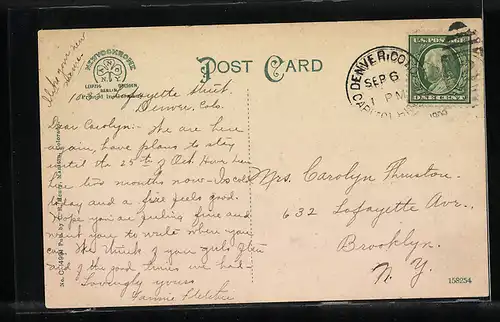 POST CARD
NEWVOCHROME
N
N Y
Co
LEIPZIG DRESDEN
BERLIN
DENVER, COLO.
SEP 6
1 PM
U.S. POSTAGE
ONE CENT
1033 Lafayette Street.
Denver, Colo.
Dear Carolyn:- We are here
again, have plans to stay
until the 25th of Oct. Have been
here two months now - Its cold
today and a fire feels good.
Hope you are feeling fine and
want you to write when you
can. We think of you girls often
and of the good times we had.
Lovingly yours
Fannie Fletcher
Mrs. Carolyn Thurston.
632 Lafayette Ave.,
Brooklyn.
N. Y.
158254